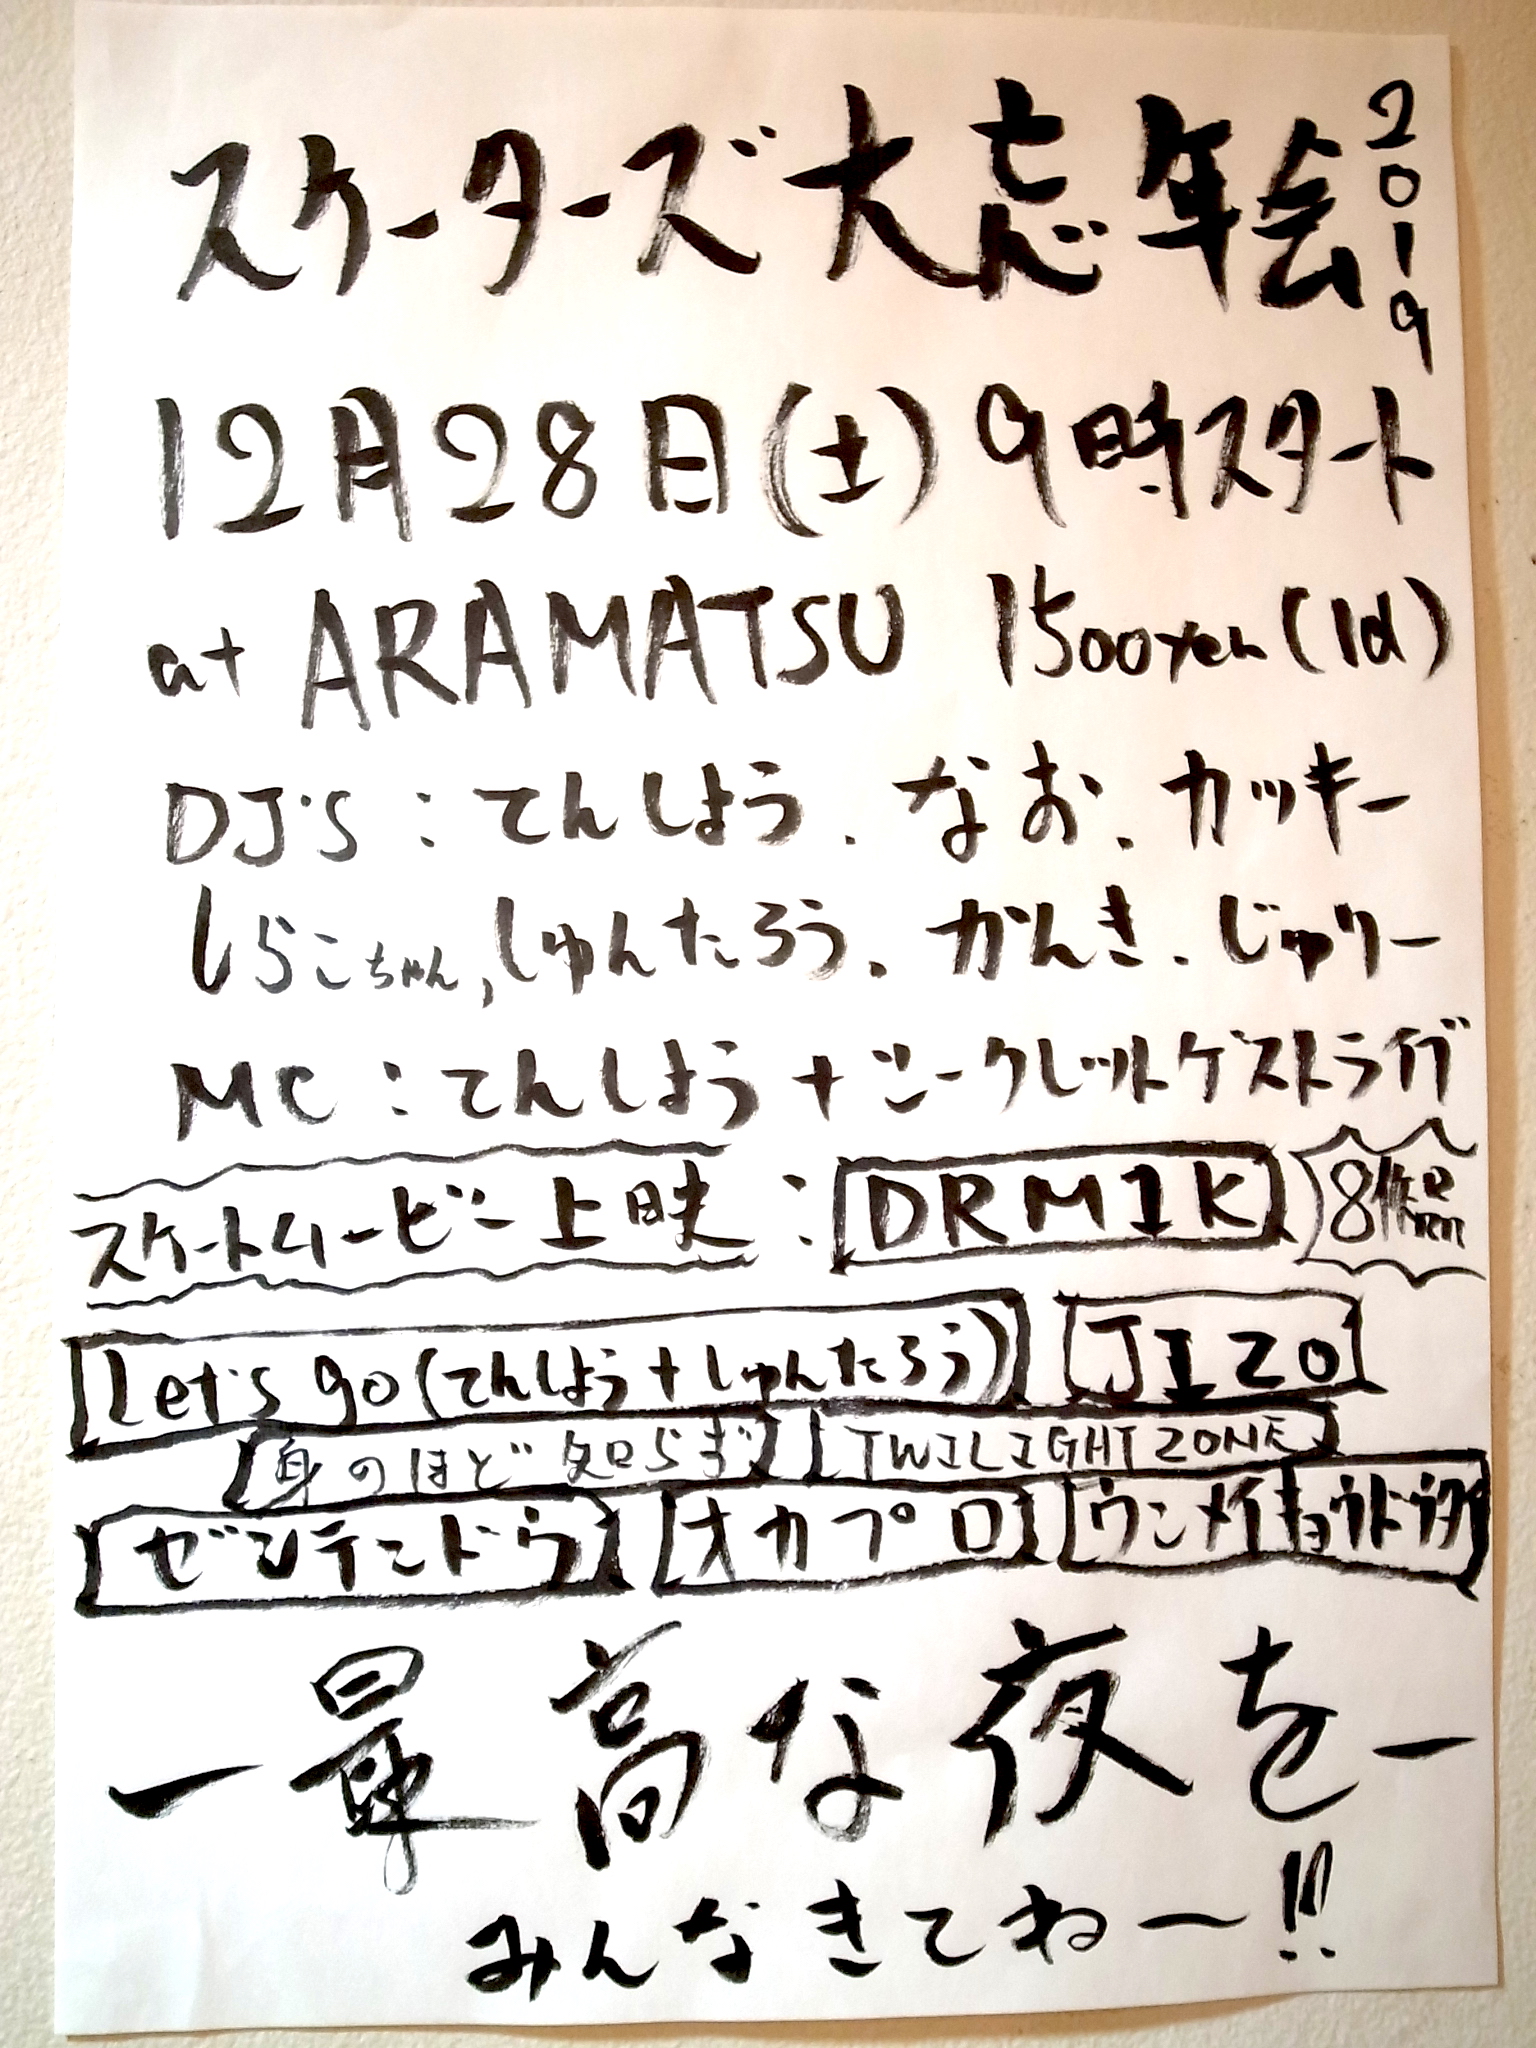 スケーターズ大忘年会2019
12月28日(土)9時スタート
at ARAMATSU 1500yen(1d)
DJ'S:てんしょう、なお、カッキー
しらこちゃん,しゅんたろう、かんき、じゅりー
MC:てんしょう+シークレットゲストライブ
スケートムービー上映:DRM1K 8作品
Let's go(てんしょう+しゅんたろう) JIZO
身のほど知らず TWILIGHT ZONE
ゼンテンドウ オカプロ ウンメイキョウドウタイ
ー最高な夜をー
みんなきてねー!!!